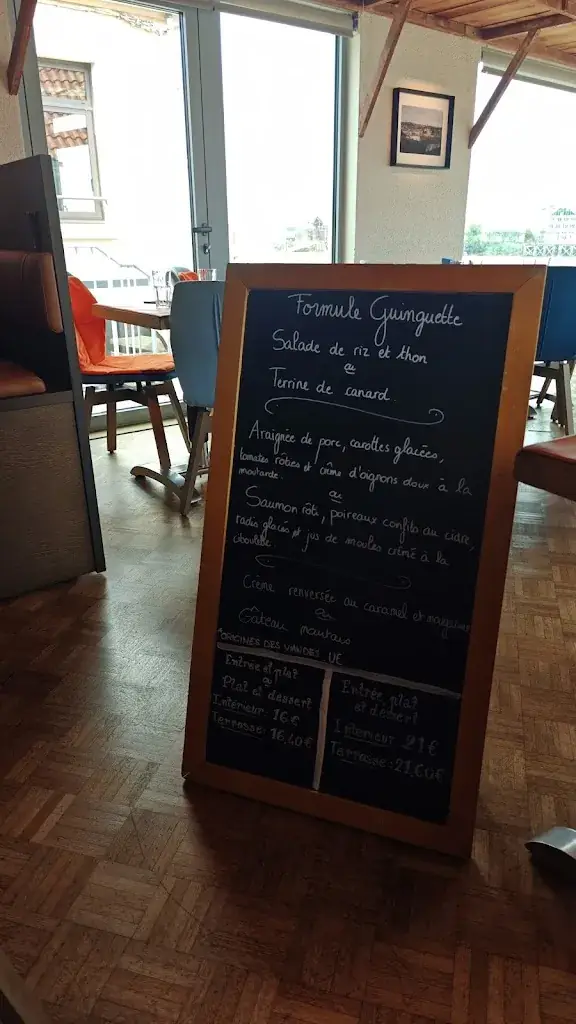 Formule Guinguette
Salade de riz et thon
ou
Terrine de canard.
Araignée de porc, carottes glacées,
tomates rôties et crème d'oignons doux à la
moutarde.
ou
Saumon rôti, poireaux confits au cidre,
radis glacés et jus de moules crémé à la
ciboulette.
Crème renversée au caramel et
ou
Gâteau
*ORIGINES DES VIANDES UE
Entrée et plat
ou
Plat et dessert
Intérieur: 16€
Terrasse: 16,40€
Entrée, plat
et dessert
Intérieur 21€
Terrasse: 21,60€